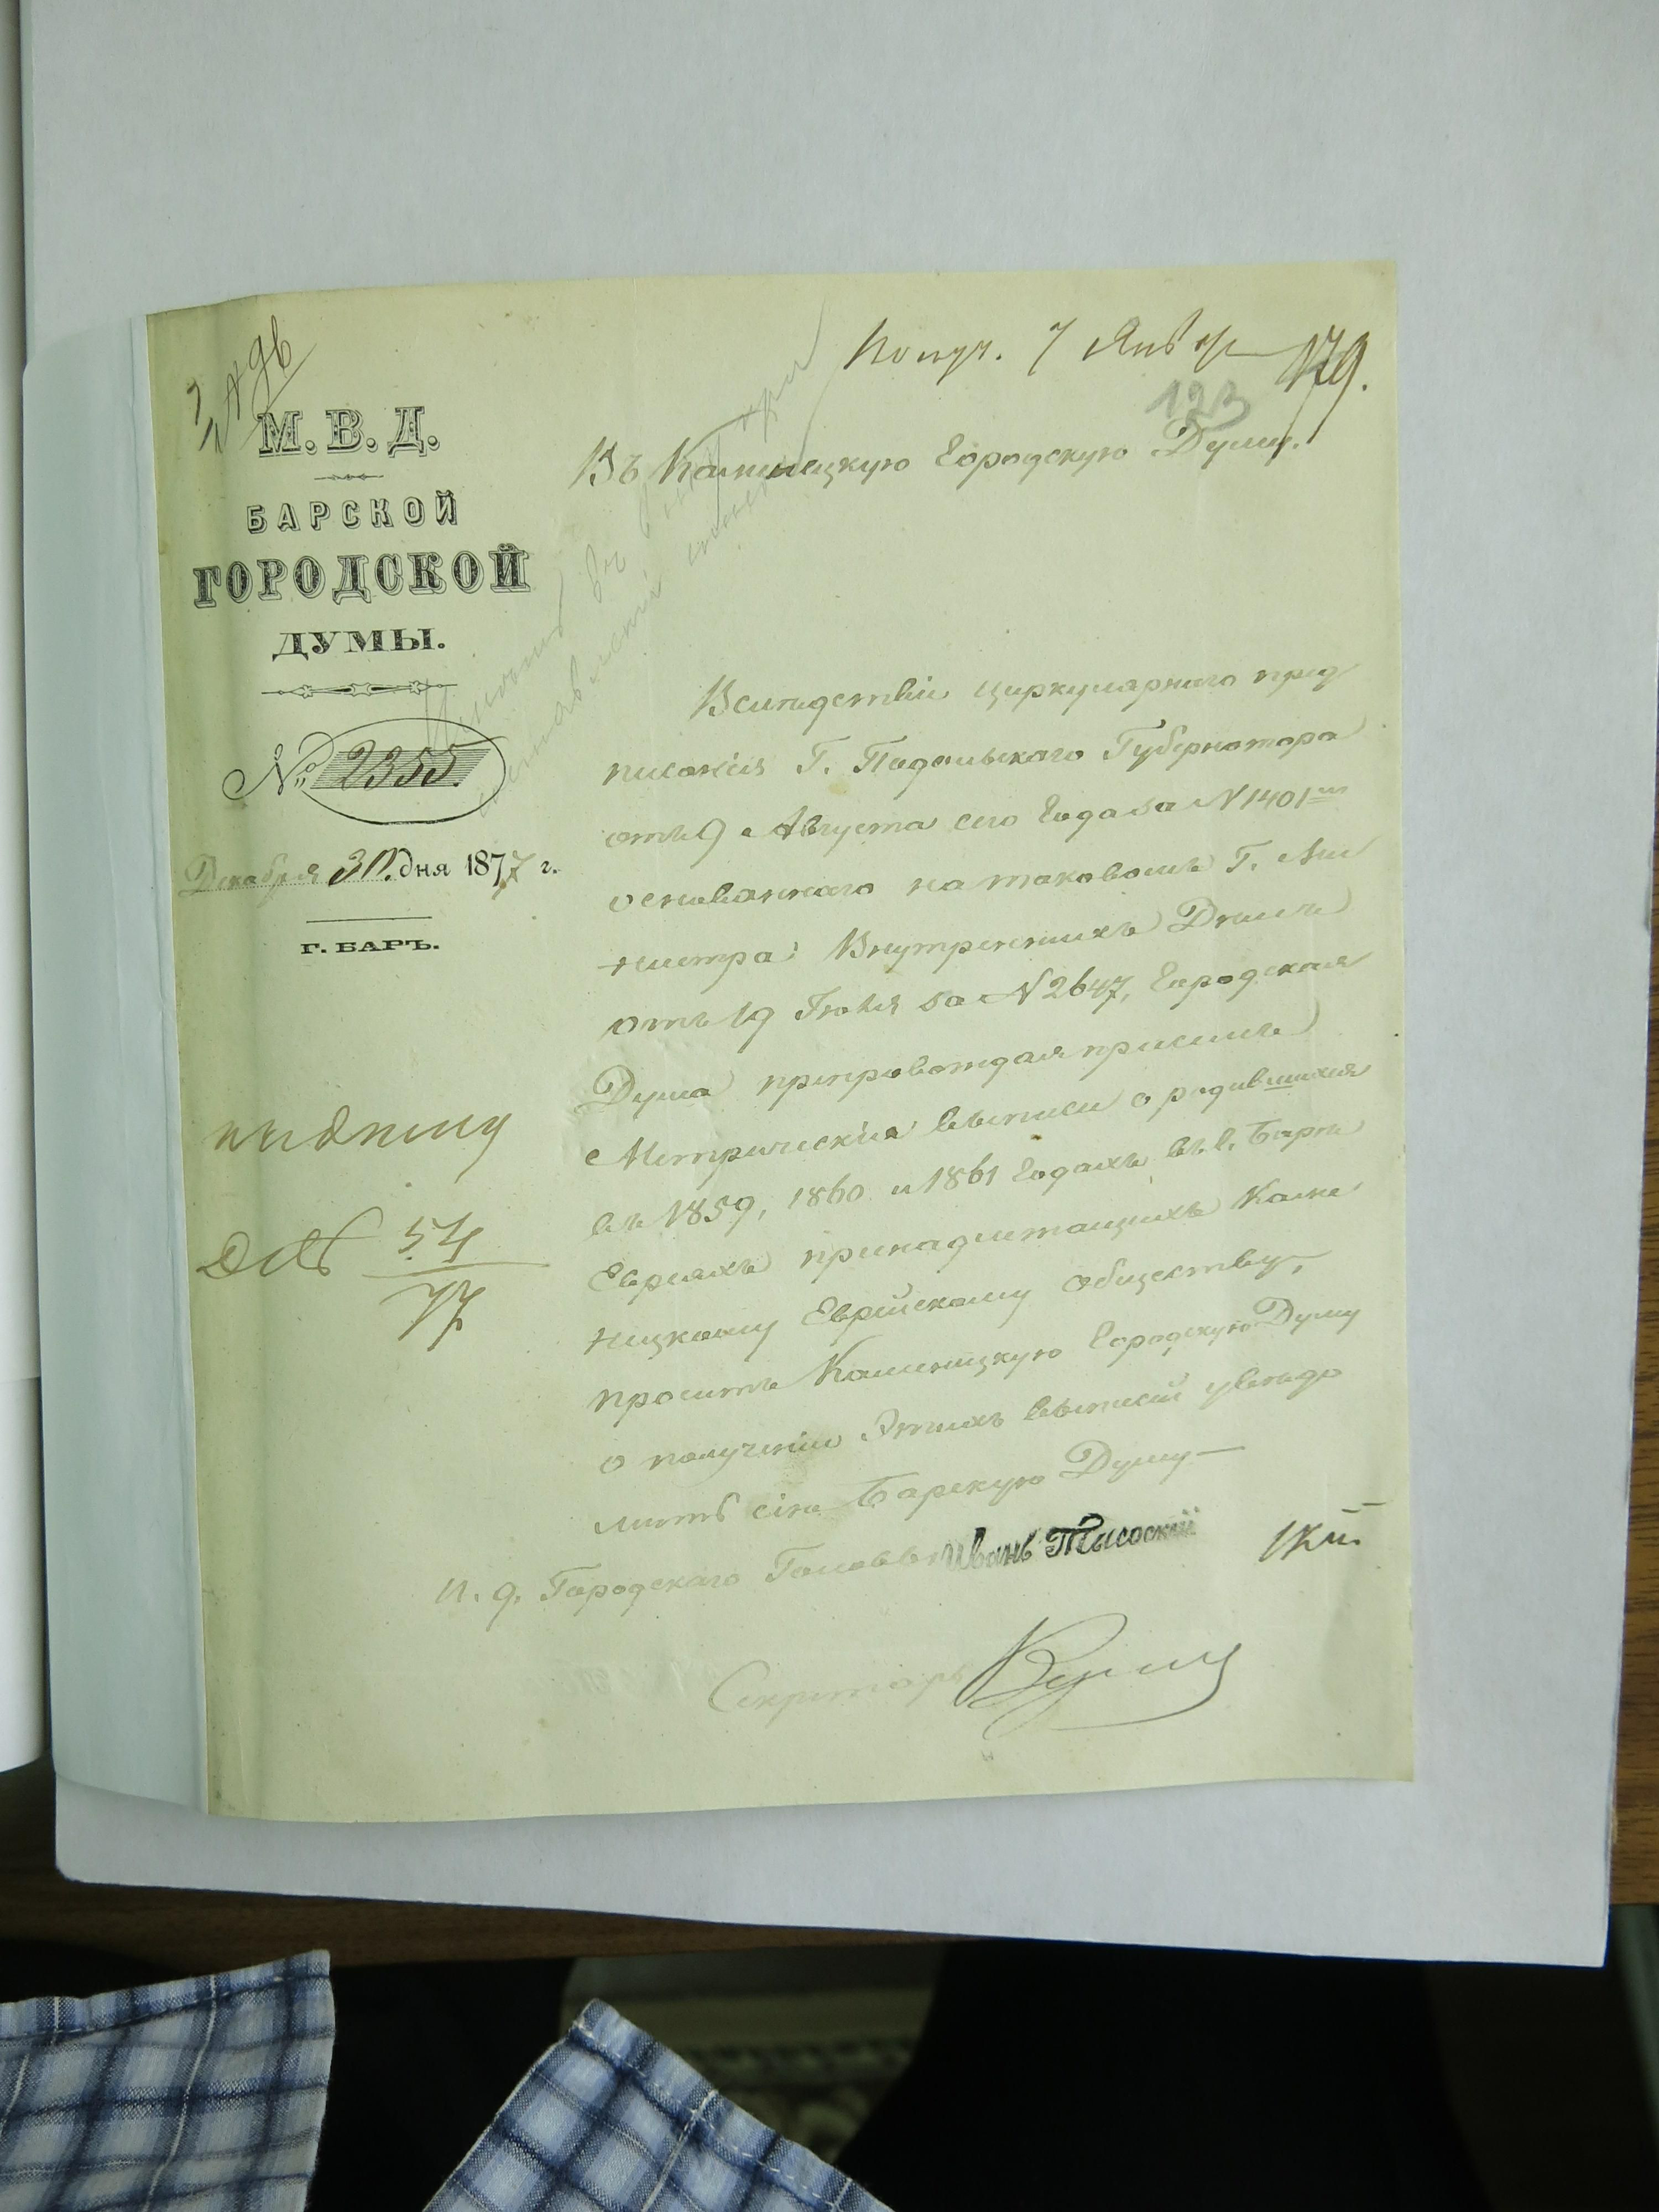 Получ. 7 Января
179.
123
№ 96
М. В. Д.
БАРСКОЙ
ГОРОДСКОЙ
ДУМЫ.
№ 2355
Декабря 30 дня 1877 г.
Г. БАРЪ.
Въ Каменецкую Городскую Думу.
Вслѣдствіи циркулярнаго пред
писанія Г. Подольскаго Губернатора
отъ 9 Августа сего Года за N 1401
основаннаго на таковомъ Г. Ми
нистра Внутреннихъ Дѣлъ
отъ 19 Іюля за N 2647, Городская
Дума препровождая присемъ
Метрическія выписи о родившихся
въ 1859, 1860 и 1861 Годахъ въ г. Барѣ
Евреяхъ принадлежащихъ Каме
ницкому Еврейскому обществу,
проситъ Каменицкую Городскую Думу
о полученіи Этихъ выписей увѣдо
мить сію Барскую Думу
И. д. Городскаго Головы Иванъ
Секретарь
Къ дѣлу
54
77